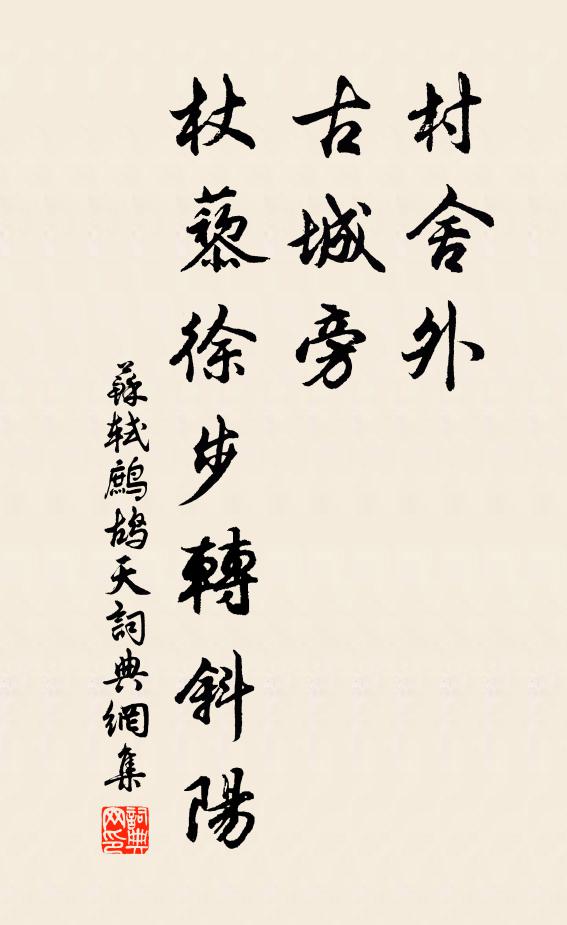 村舍外
古城旁
杖藜徐步轉斜陽
蘇軾鷓鴣天詞典網集
詞典
网印